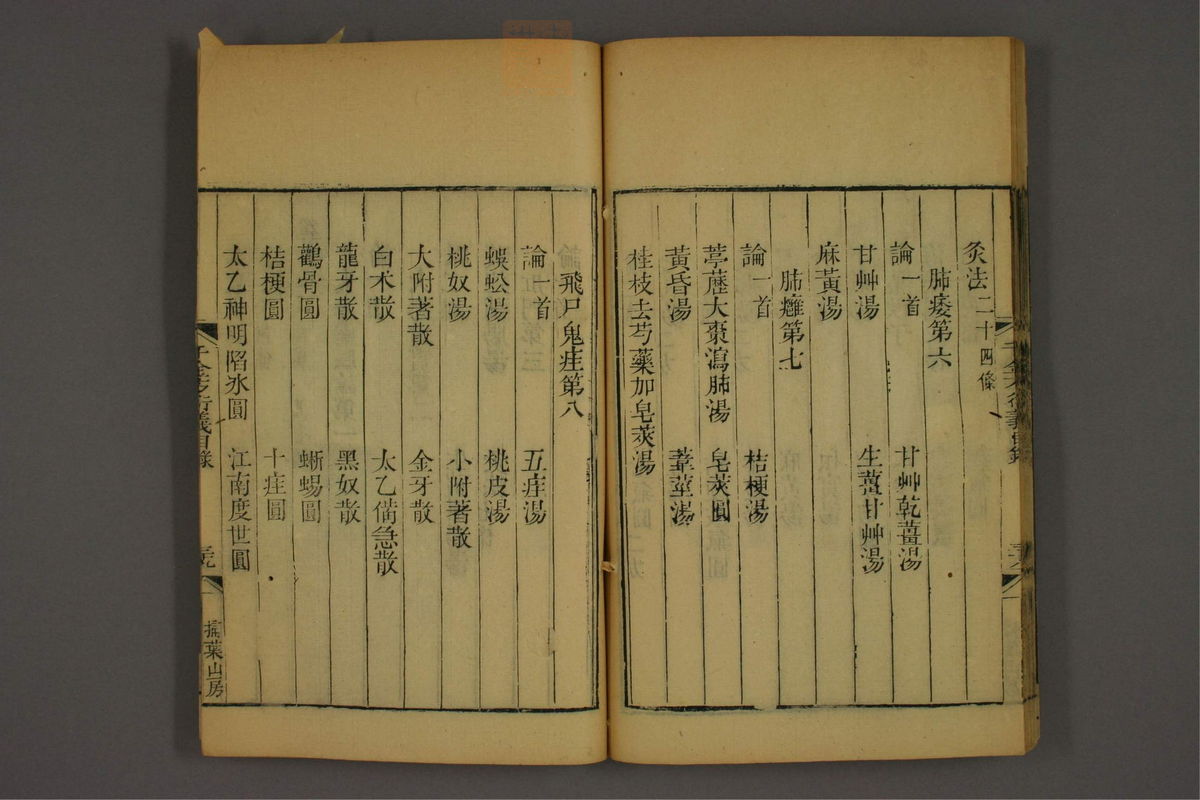 灸法二十四條
肺痿第六
論一首　甘艸乾薑湯
甘艸湯　生薑甘艸湯
麻黃湯
肺癰第七
論一首　桔梗湯
葶藶大棗瀉肺湯　皂莢圓
黃昏湯　葦莖湯
桂枝去芍藥加皂莢湯
飛尸鬼疰第八
論一首　五疰湯
蜈蚣湯　桃皮湯
桃奴湯　小附著散
大附著散　金牙散
白朮散　太乙備急散
龍牙散　黑奴散
鸛骨圓　蜥蜴圓
桔梗圓　十疰圓
太乙神明陷冰圓　江南度世圓
千金方衍義目錄
掃葉山房